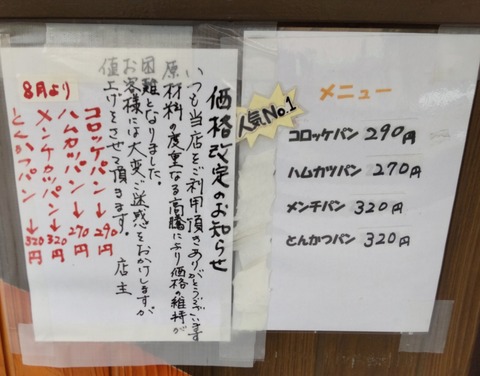 価格改定のお知らせ
いつも当店をご利用頂きありがとうございます
原材料の度重なる高騰により価格の維持が
困難となりました。
お客様には大変ご迷惑をおかけしますが
値上げをさせて頂きます。
店主
8月より
コロッケパン→290円
ハムカツパン→270円
メンチカツパン→320円
とんかつパン→320円
人気No.1
メニュー
コロッケパン 290円
ハムカツパン 270円
メンチパン 320円
とんかつパン 320円